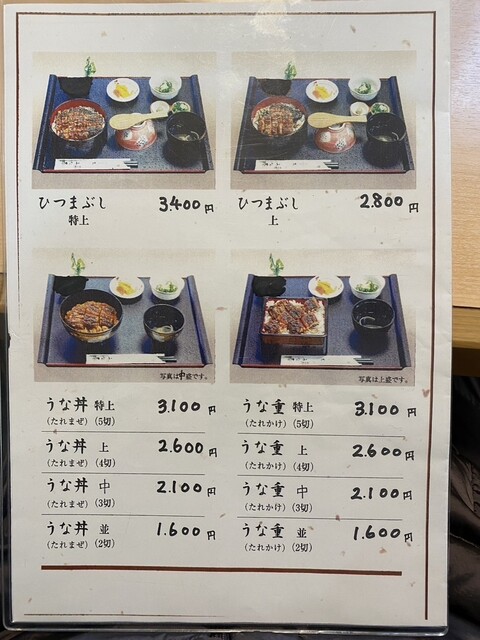 ひつまぶし 3.400円
特上
ひつまぶし 2.800円
上
写真は中盛です。
うな丼 特上 3.100円
(たれまぜ) (5切)
うな丼 上 2.600円
(たれまぜ) (4切)
うな丼 中 2.100円
(たれまぜ) (3切)
うな丼 並 1.600円
(たれまぜ) (2切)
写真は上盛です。
うな重 特上 3.100円
(たれかけ) (5切)
うな重 上 2.600円
(たれかけ) (4切)
うな重 中 2.100円
(たれかけ) (3切)
うな重 並 1.600円
(たれかけ) (2切)